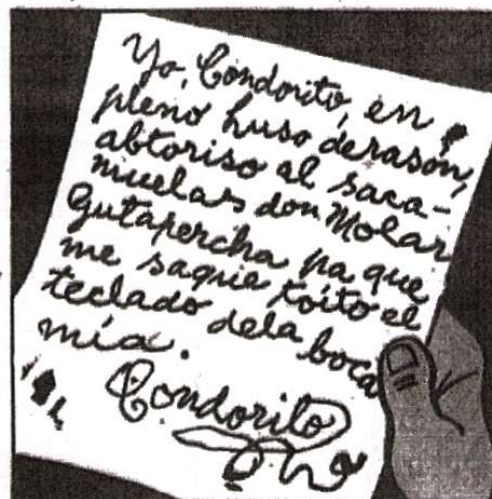 Yo, Condorito, en
pleno huso derasón,
abtoriso al saca-
muelas don Molar
Gutapercha pa que
me saque toíto el
teclado dela boca
mía.
Condorito